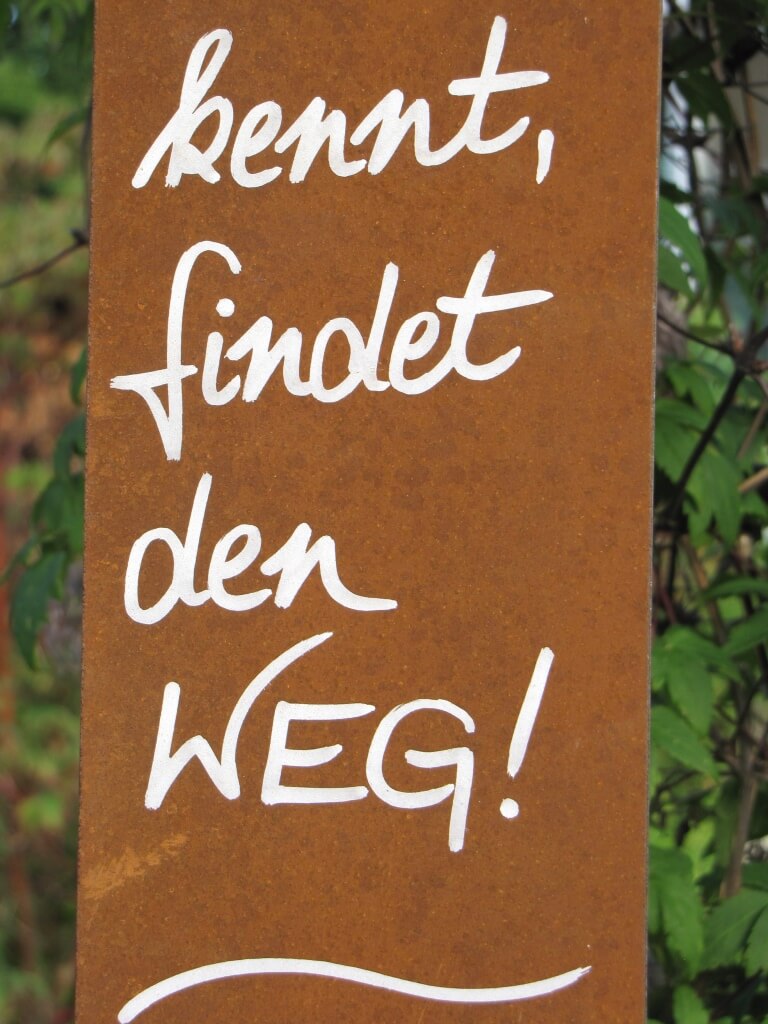 kennt,
findet
den
WEG!